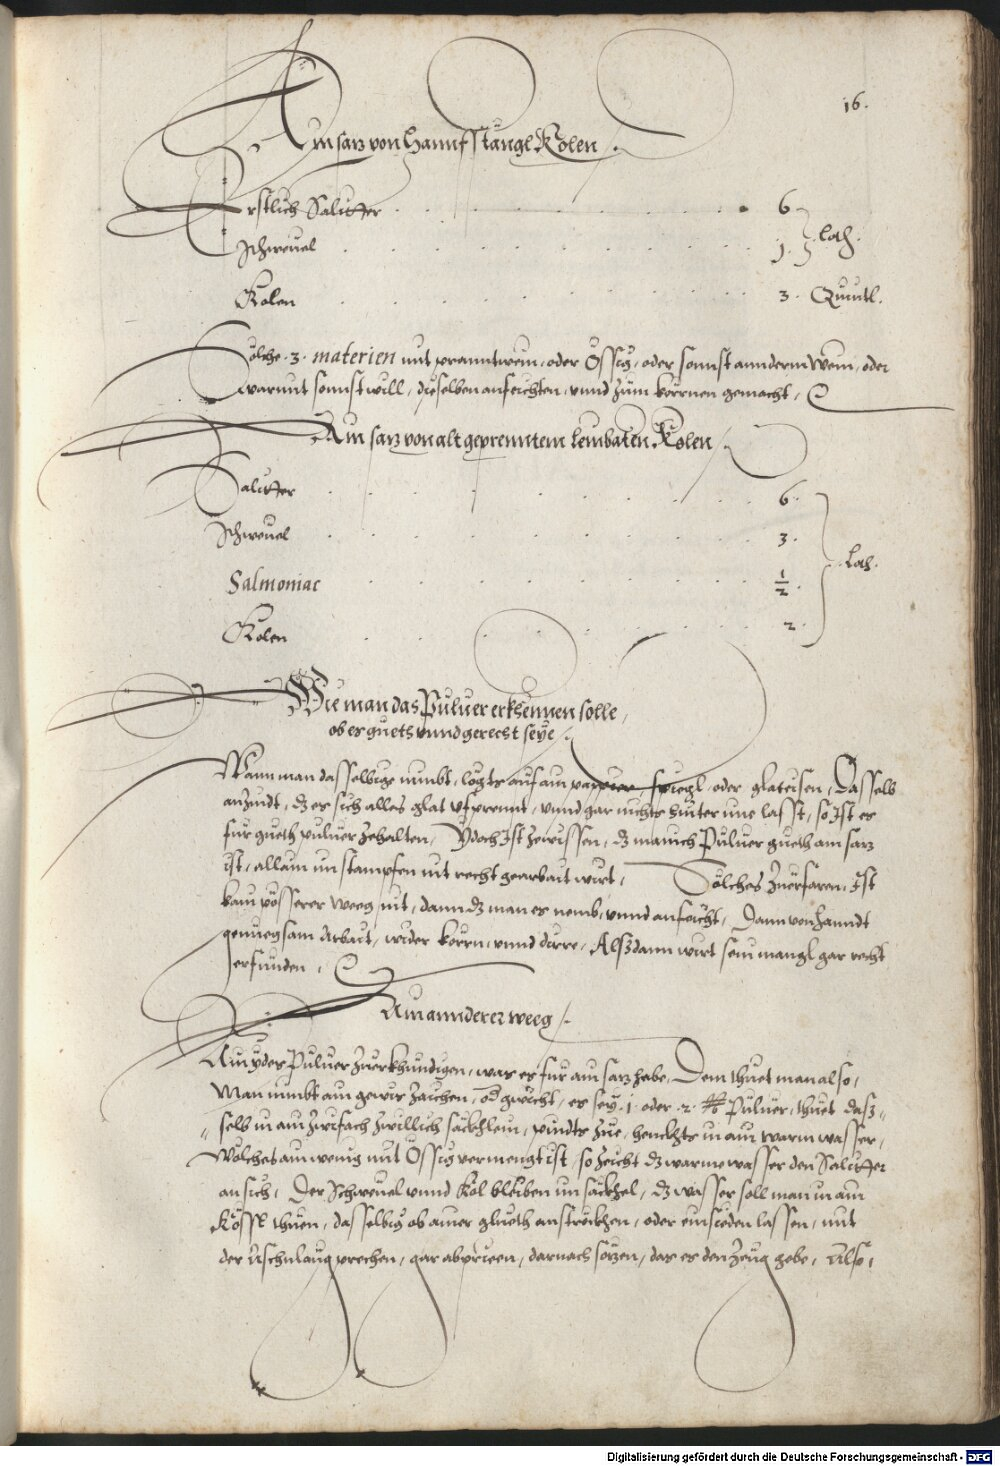 16.
Ain satz von Hannfstängl Kolen
Erstlich Salitter . . . 6.
Schweuel . . . 1. Loth.
Kolen . . . 3. Quintl.
Solche .3. materien mit pranntwein, oder Össig, oder sonnst annderm Wein, oder
warmit sonnst will, dieselben anfeichten, vnnd zum körrnen gemacht,
Ain satz von alt geprenntem leinbaten Kolen
Salitter . . . 6.
Schweuel . . . 3.
Salmoniac . . . ½. Loth.
Kolen . . . 2.
Wie man das Puluer erkhennen solle,
ob es gueth vnnd gerecht seye.
Wann man dasselbige nimbt, legts auf ain pappier spiegl, oder glateisen, Dasselb
anzindt, dz es sich alles glat vfprennt, vnnd gar nichts hinter ime lasst, so Ist es
für gueth puluer zehalten, Ydoch Ist zewissen, dz manich Puluer gueth am satz
ist, allain im stampfen nit recht gearbait wirt, Solches zuerfaren, Ist
kain pösserer weeg nit, dann dz man es nemb, vnnd anfeicht, Dann von hanndt
genuegsam Arbait, wider körrn, vnnd dirre, Alsdann wirt sein mangl gar recht
erfunden,
Ain annderer weeg
Ain yder Puluer zuerkhundigen, was es für ain satz habe, Dem thuet man also,
Man nimbt ain gewis zaichen, od gwicht, es sey .1. oder .2. ℔ Puluer, thuet dass=
=selb in ain zwifach zwillich säckhlein, pindts zue, henckhts in ain warm wasser,
Wölches ain wenig mit Össig vermengt ist, so zeicht dz warme wasser den Salitter
an sich, Der Schweuel vnnd Kol bleiben im säckhel, dz wasser soll man in ain
Kössl thuen, dasselbig ob ainer glueth anströckhen, oder einsieden lassen, mit
der Aschnlaug prechen, gar abprieen, darnach setzen, das es den zeug gebe, Also,
Digitalisierung gefördert durch die Deutsche Forschungsgemeinschaft - DFG